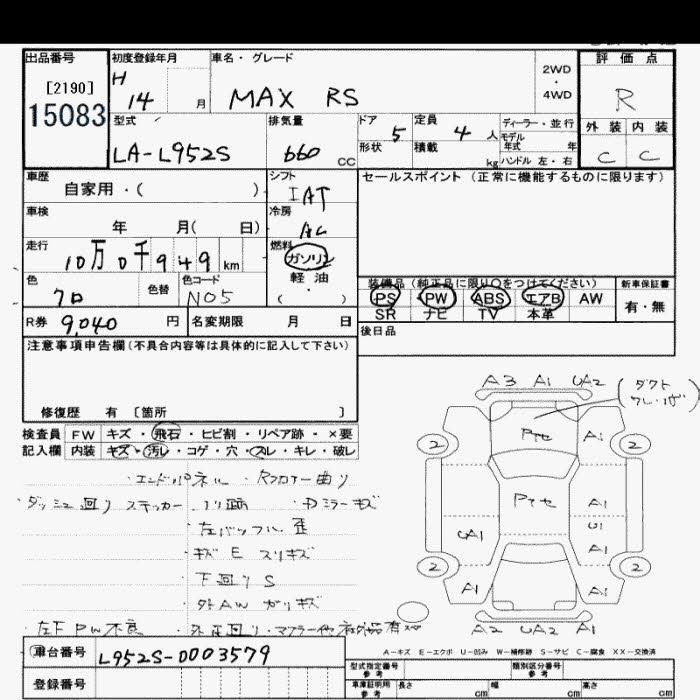 出品番号
[2190]
15083
初度登録年月
H
14 月
車名・グレード
MAX RS
2WD
・
4WD
評価点
R
外装 内装
C C
型式
LA-L952S
排気量
660 cc
ドア
5
定員
4 人
形状
積載
kg
ディーラー・並行
モデル
年式 年
ハンドル 左・右
車歴
自家用・( )
シフト
IAT
車検
年 月( 日)
冷房
AC
走行
10万0千949 km
燃料
ガソリン
・
軽油
( )
色
クロ
色替
色コード
N05
R券 9,040 円
名変期限 月 日
セールスポイント(正常に機能するものに限ります)
装備品(純正品に限り○をつけてください)
PS PW ABS エアB AW
SR ナビ TV 本革
新車保証書
有・無
後日品
注意事項申告欄(不具合内容等は具体的に記入して下さい)
修復歴 有〔箇所 〕
検査員 FW キズ・飛石・ヒビ割・リペア跡・×要
記入欄 内装 キズ・汚レ・コゲ・穴・スレ・キレ・破レ
・エンドパネル ・Rフロアー曲り
・ダッシュ回り ステッカー ・ ・Dミラーキズ
・左バッフル歪
・キズ E スリキズ
・下回り S
・外AW ガリキズ
・左F PW不良
・マフラー他
A3 A1 UA2
(ダクト
2 2
Pケセ
A1
Pケセ
A1
U1
UA1
A1
2 2
A1 A1
A2 UA2 A1
A-キズ E-エクボ U-凹み W-補修跡 S-サビ C-腐食 XX-交換済
車台番号 L952S-0003579
登録番号
型式指定番号
参考
類別区分番号
参考
車庫証明用
参考
長さ cm
幅 cm
高さ cm